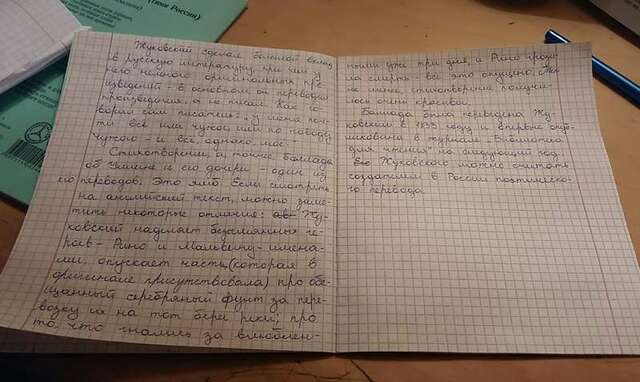 (гимн России)
Жуковский сделал большой вклад
в русскую литературу, при чем у
него немного оригинальных про-
изведений - в основном он переводил
произведения, а не писал. Как
говорил сам писатель: "У меня поч-
ти всё или чужое, или по поводу
чужого - и всё, однако, мое."
Стихотворение, а точнее, Баллада
об Уллине и его дочери - один из
его переводов. Это ямб. Если смотреть
на английский текст, можно заме-
тить некоторые отличия: Жу-
ковский наделяет безымянных ге-
роев - Рино и Мальвину - имена-
ми, опускает часть (которая в
оригинале присутствовала) про обе-
щанный серебряный фунт за пере-
возку их на тот берег реки; про
то, что гнались за влюблен-
ными уже три дня, и Рино грози-
ла смерть - все это опущено. Тем
не менее, стихотворение получи-
лось очень красивое.
Баллада была переведена Жу-
ковским в 1833 году и впервые опуб-
ликована в журнале "Библиотека
для чтения" на следующий год.
Жуковского можно считать
создателем в России поэтическо-
го перевода.